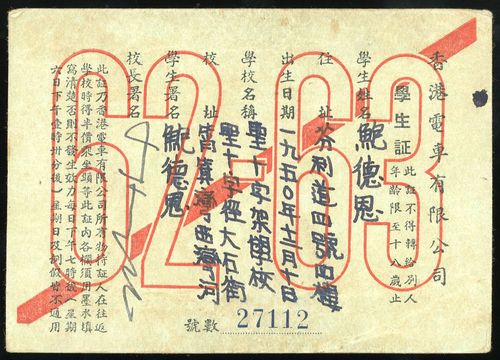 香港電車有限公司
學生証
此證不得轉給別人
年齡限至十八歲止
學生姓名 鮑德恩
住址 芬利道四號四樓
出生日期 一九五〇年十二月十日
學校名稱 聖十字架學校
校址 筲箕灣西灣河聖十字徑大石街
學生署名 鮑德恩
校長署名
此証乃香港電車有限公司所有物持証人在往返
學校時得半價乘坐頭等此証內各欄須用墨水填
寫清楚否則不發生效力每日下午七時後(星期
六日下午壹時卅分後)星期日及假期皆不適用
號數 27112
62-63